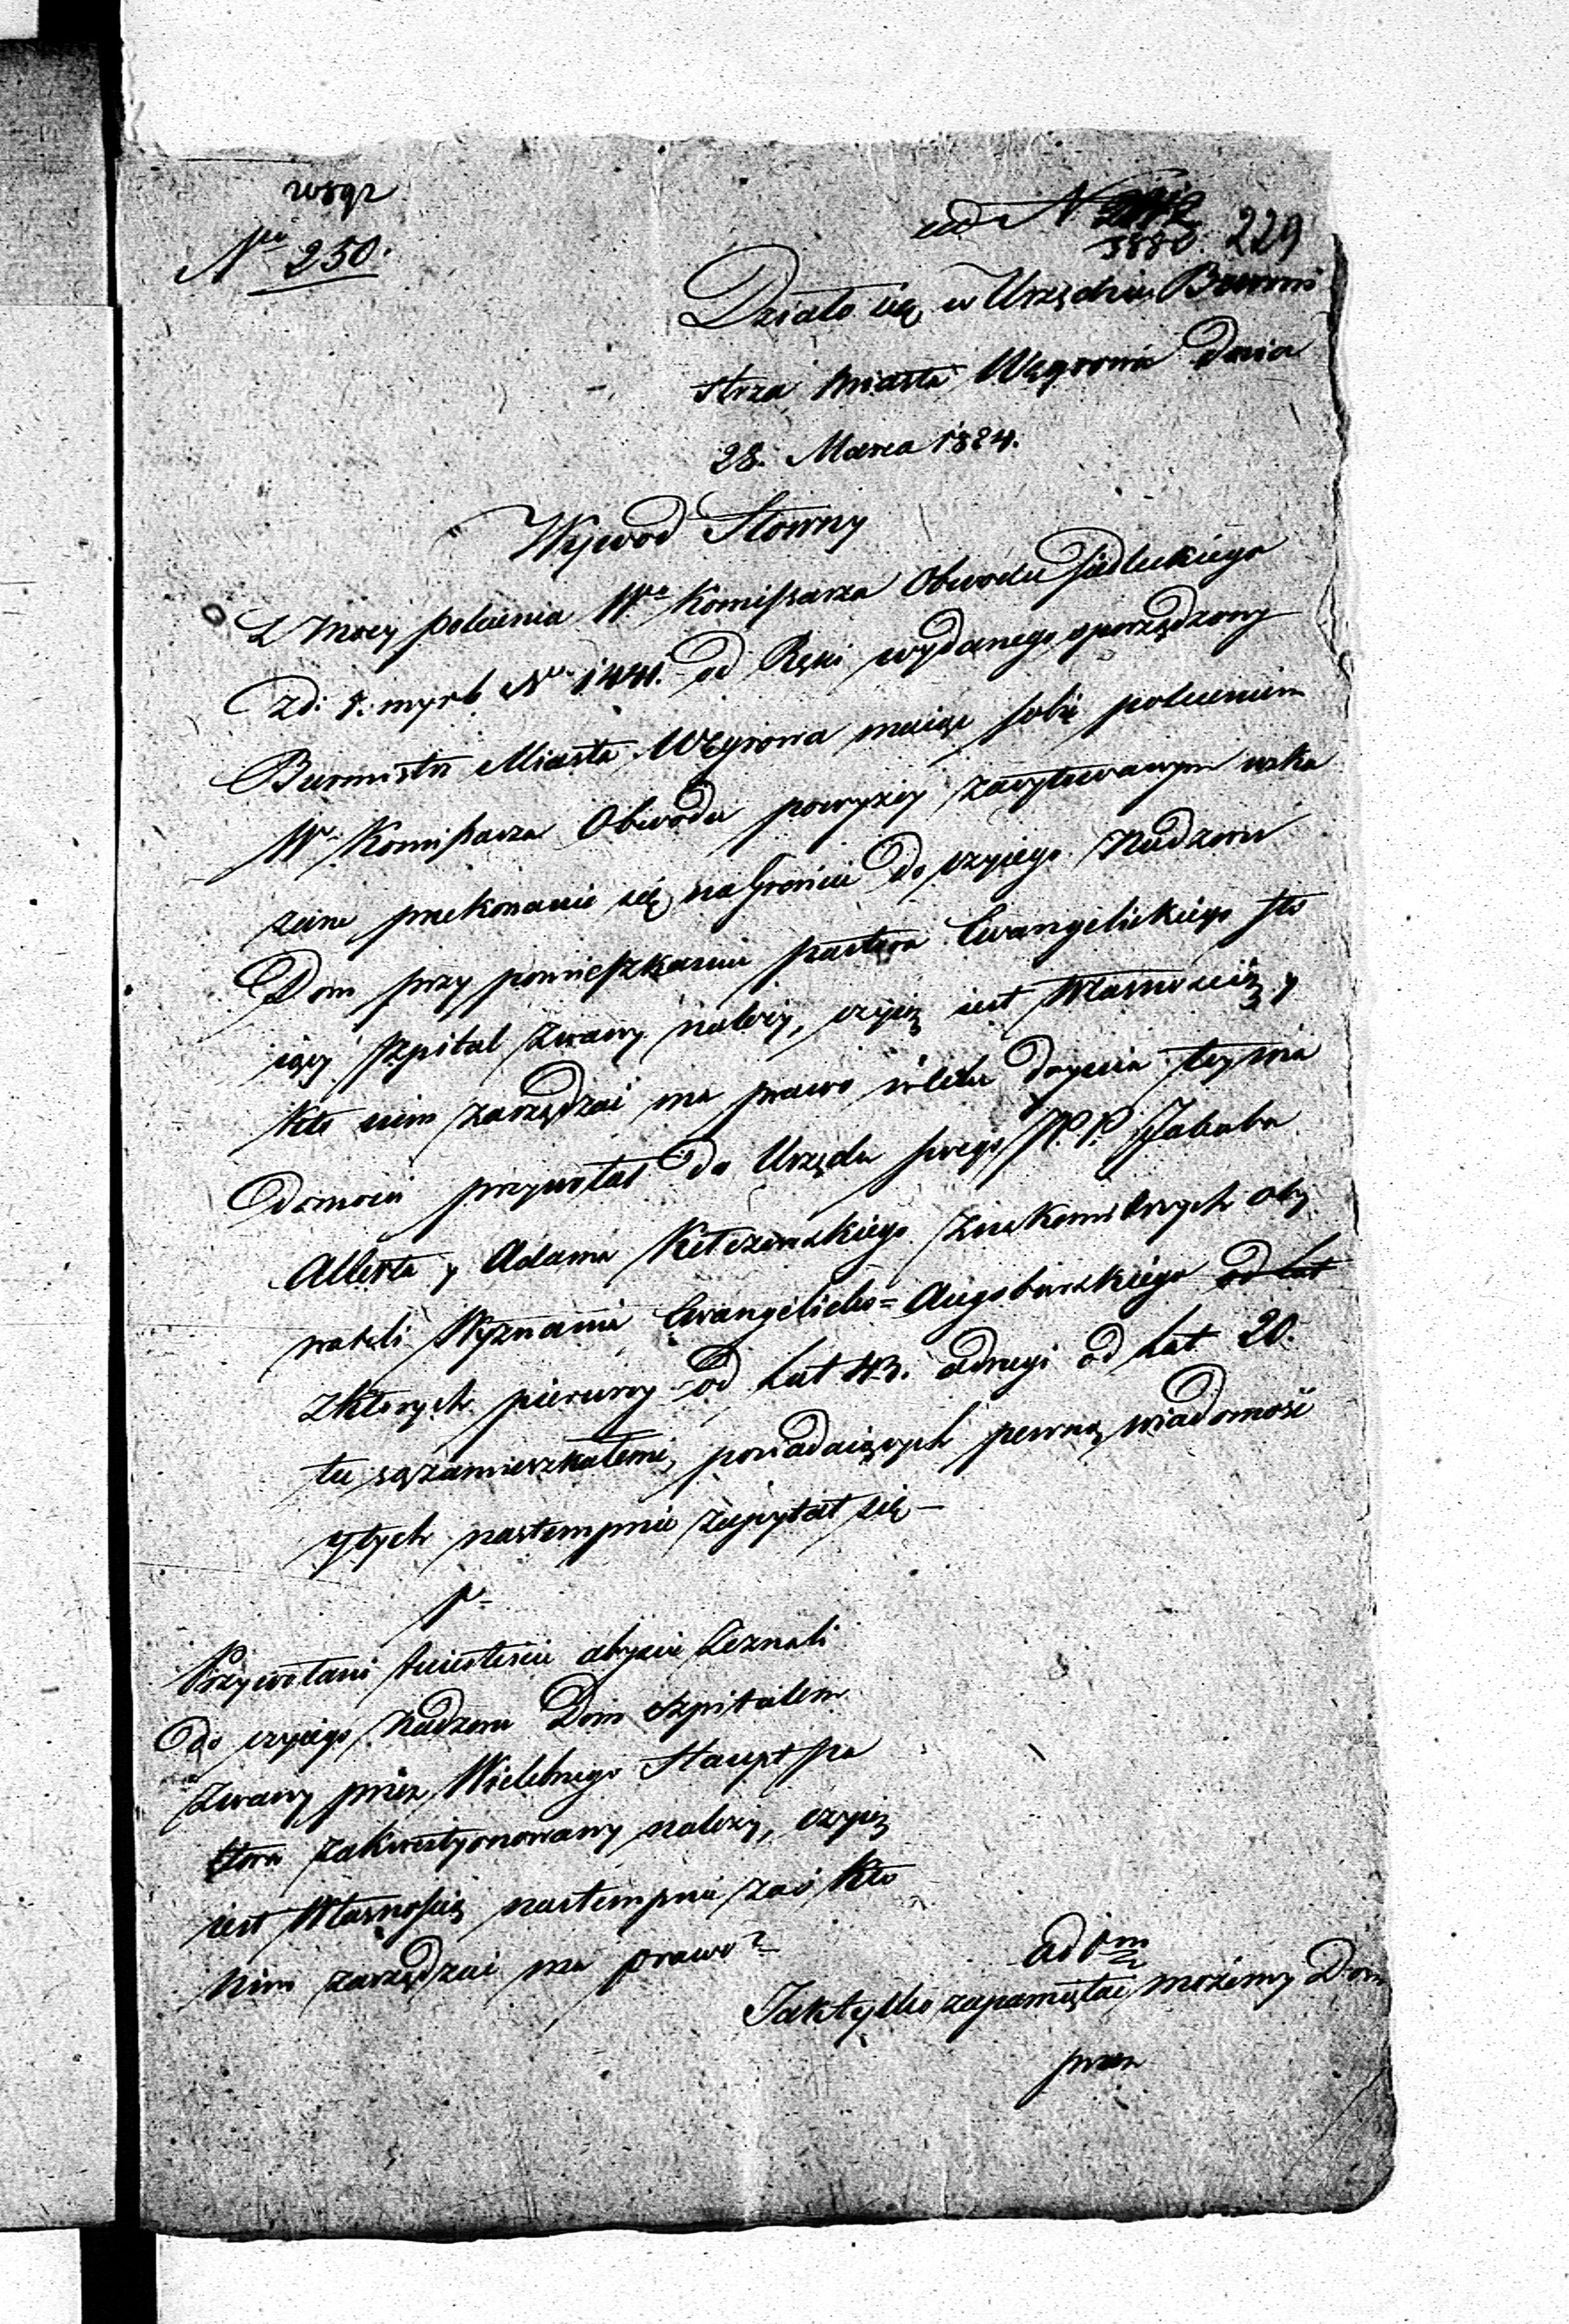 Nro 250.
ad N
3882. 229
Działo się w Urzędzie Burmi
strza Miasta Węgrowa Dnia
28. Marca 1824.
Wywod Słowny
Z Mocy polecenia Wo Komissarza Obwodu Siedleckiego
zd: 8. m. y r. b. No 1441. od Ręki wydanego sporządzony
Burmistrz Miasta Węgrowa maiąc sobie poleceniem
W. Komissarza Obwodu powyżey zacytowanym wska
zane przekonanie się na Gróncie do czyiego Nadzoru
Dom przy pomieszkaniu pastora Ewangelickiego sto
iący szpital zwany należy, czyią iest Własnością, y
kto nim zarządzać ma prawo w celu doyścia tey wia
domości przywołał do Urzędu swego PP. Jakuba
Alberta y Adama Ketczynskiego znakomitszych oby
wateli Wyznania Ewangelicko=Augsburskiego od lat
z których pierwszy od Lat 43. a drugi od Lat 20.
tu są zamieszkałemi, posiadaiących pewną wiadomość
y tych nastempnie zapytał się —
1o
Przywołani iesteście abyście zeznali
do czyiego Nadzoru Dom szpitalem
zwany przez Wielebnego Haupt pa
stora zakwestyonowany należy, czyią
iest Własnością nastempnie zaś kto
nim zarządzać ma prawo?
ad 1m
Jak tylko zapamiętać możemy Dom
przez